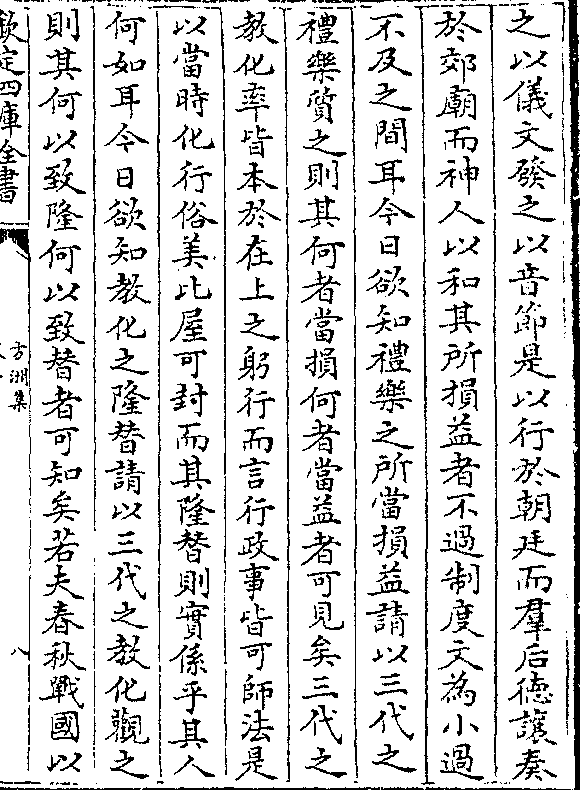 之以儀文發之以音節是以行於朝廷而羣后德讓奏
於郊廟而神人以和其所損益者不過制度文為小過
不及之間耳今日欲知禮樂之所當損益請以三代之
禮樂質之則其何者當損何者當益者可見矣三代之
教化率皆本於在上之躬行而言行政事皆可師法是
以當時化行俗美比屋可封而其隆替則實係乎其人
何如耳今日欲知教化之隆替請以三代之教化觀之
則其何以致隆何以致替者可知矣若夫春秋戰國以
欽定四庫全書
方洲集
八